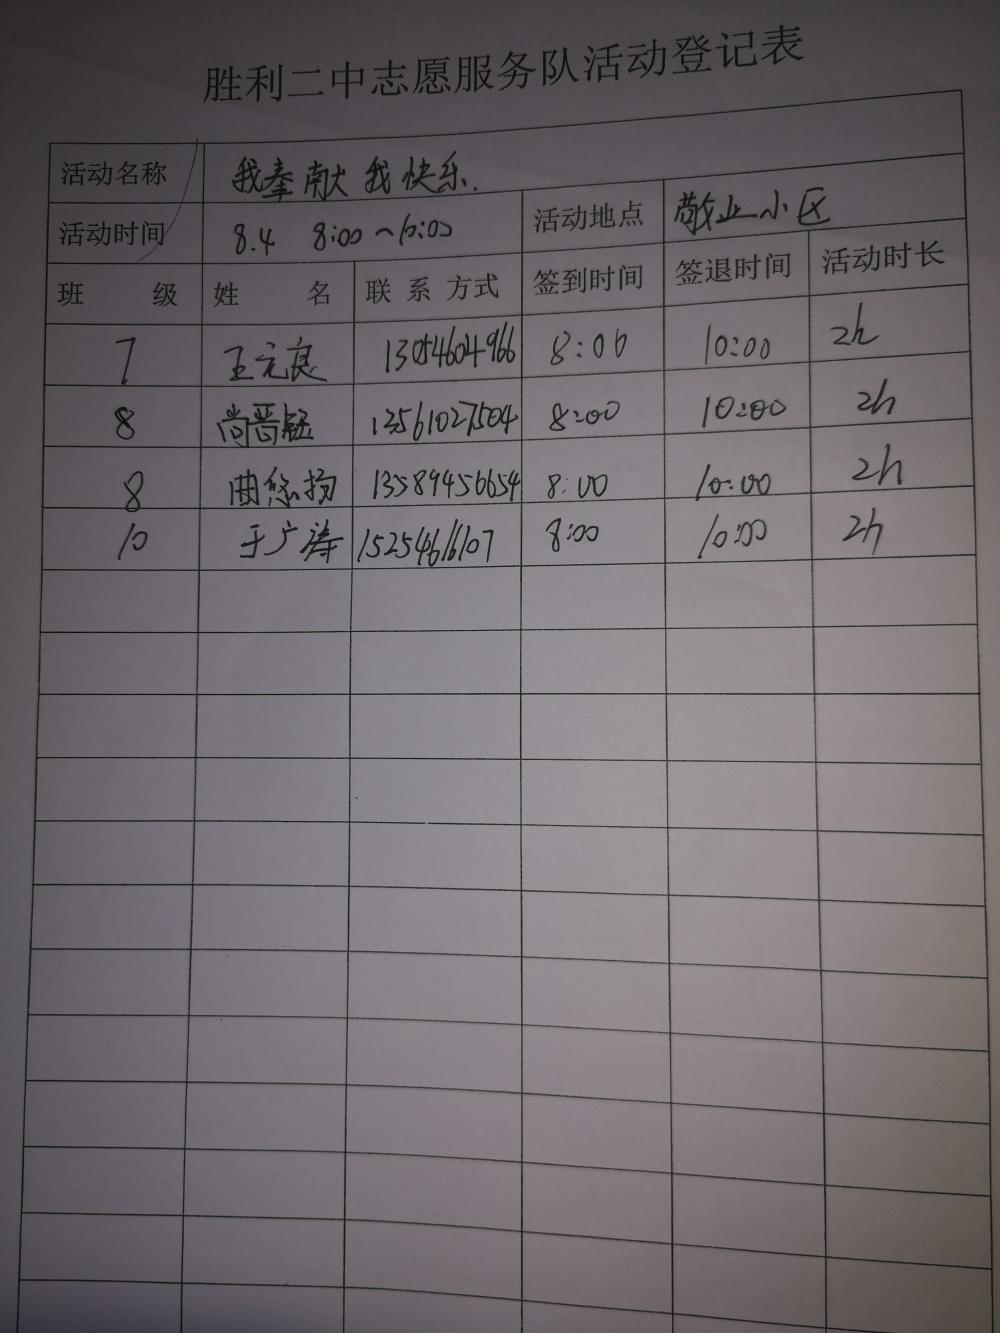 胜利二中志愿服务队活动登记表
活动名称 我奉献 我快乐.
活动时间 8.4 8:00~10:00 活动地点 敬业小区
班 级 姓 名 联系方式 签到时间 签退时间 活动时长
7 王元良 13054604966 8:00 10:00 2h
8 尚晋 13561027504 8:00 10:00 2h
8 曲悠扬 13589456654 8:00 10:00 2h
10 于广涛 15254616107 8:00 10:00 2h